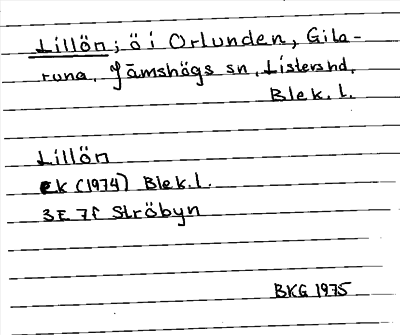 Lillön; ö i Orlunden, Gila-
runa, Jämshögs sn, Listers hd,
Blek. l.
Lillön
ek (1974) Blek. l.
3E 7f Ströbyn
BKG 1975